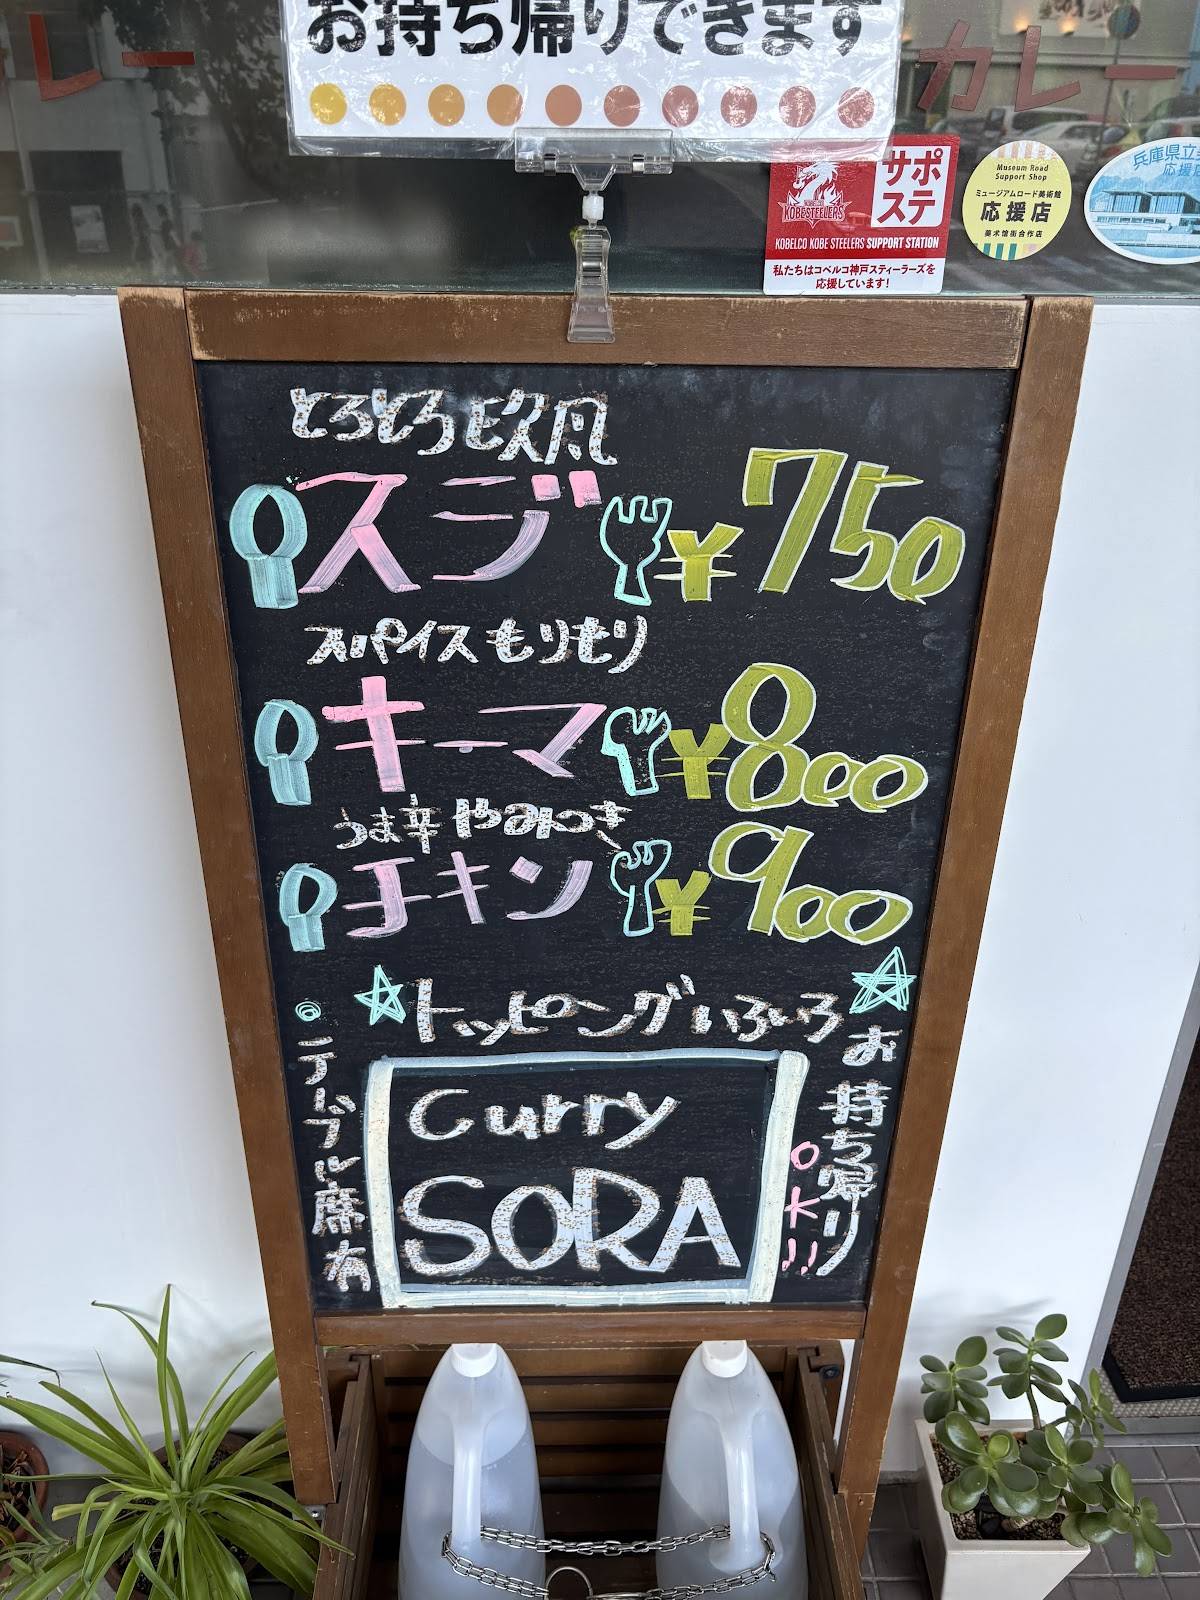 お持ち帰りできます
レー
カレー
サポ
ステ
KOBELCO
KOBE STEELERS
KOBELCO KOBE STEELERS SUPPORT STATION
私たちはコベルコ神戸スティーラーズを
応援しています!
Museum Road
Support Shop
ミュージアムロード美術館
応援店
美术馆街合作店
兵庫県立美
応援店
とろとろ
スジ ¥750
スパイスもりもり
キーマ ¥800
うま辛やみつき
チキン ¥900
トッピングいろいろ
テーブル席有
お持ち帰り
OK!!
Curry
SORA